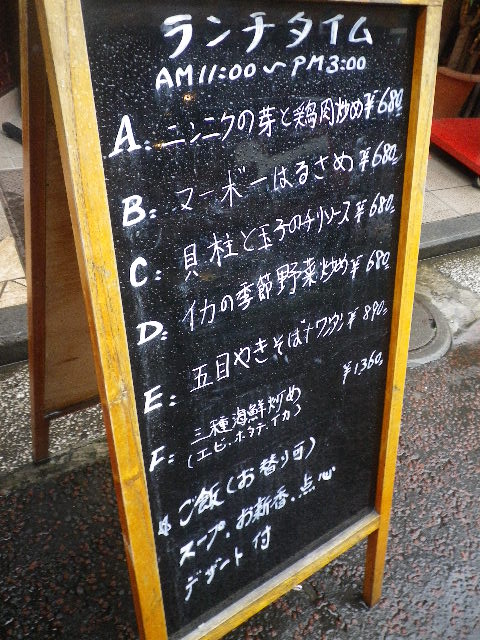 ランチタイム
AM11:00~PM3:00
A: ニンニクの芽と鶏肉炒め ¥680
B: マーボーはるさめ ¥680
C: 貝柱と玉子のチリソース ¥680
D: イカの季節野菜炒め ¥680
E: 五目やきそば+ワンタン ¥890
F: 三種海鮮炒め ¥1,360
(エビ、ホタテ、イカ)
ご飯(お替り可)
スープ、お新香、点心
デザート付